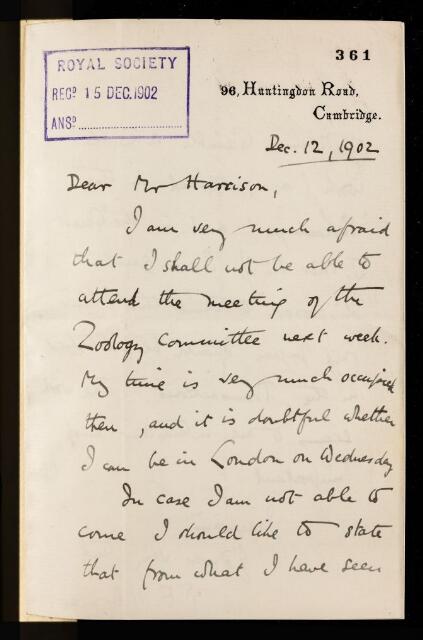 361
ROYAL SOCIETY
RECD 15 DEC.1902
ANSD
96, Huntingdon Road,
Cambridge.
Dec. 12, 1902
Dear Mr Harrison,
I am very much afraid
that I shall not be able to
attend the meeting of the
Zoology Committee next week.
My time is very much occupied
then, and it is doubtful whether
I can be in London on Wednesday
In case I am not able to
come I should like to state
that from what I have seen